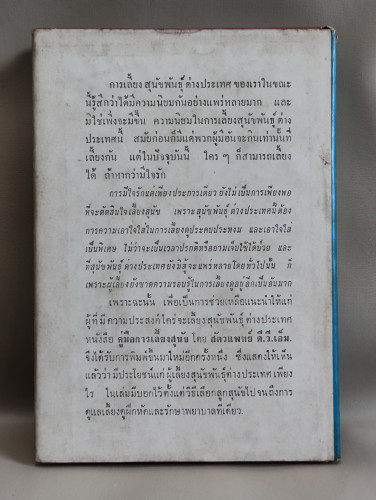 การเลี้ยง สุนัขพันธุ์ ต่างประเทศ ของเราในขณะ
นี้รู้สึกว่าได้มีความนิยมกันอย่างแพร่หลายมาก และ
มิใช่เพิ่งจะมีขึ้น ความนิยมในการเลี้ยงสุนัขพันธุ์ ต่าง
ประเทศนี้ สมัยก่อนก็มีแต่พวกผู้มีอันจะกินเท่านั้นที่
เลี้ยงกัน แต่ในปัจจุบันนี้ ใคร ๆ ก็สามารถเลี้ยง
ได้ ถ้าหากว่ามีใจรัก
การมีใจรักแต่เพียงประการเดียว ยังไม่เป็นการเพียงพอ
ที่จะตัดสินใจเลี้ยงสุนัข เพราะสุนัขพันธุ์ ต่างประเทศนี้ต้อง
การความเอาใจใส่ในการเลี้ยงดูประคบประหงม และเอาใจใส่
เป็นพิเศษ ไม่ว่าจะเป็นเวลาปรกติหรือยามเจ็บไข้ได้ป่วย และ
ที่สุนัขพันธุ์ ต่างประเทศยังมิสู้จะแพร่หลายโดยทั่วไปนั้น ก็
เพราะผู้เลี้ยงยังขาดความรอบรู้ในการเลี้ยงดูอยู่อีกเป็นอันมาก
เพราะฉะนั้น เพื่อเป็นการช่วยเหลือแนะนำให้แก่
ผู้ที่ มี ความ ประสงค์ ใคร่ จะเลี้ยง สุนัขพันธุ์ ต่างประเทศ
หนังสือ คู่มือการเลี้ยงสุนัข โดย สัตวแพทย์ ดี.วี.เอ็ม.
จึงได้รับการพิมพ์ขึ้นมาใหม่อีกครั้งหนึ่ง ซึ่งแสดงให้เห็น
แล้วว่า มีประโยชน์แก่ ผู้เลี้ยงสุนัขพันธุ์ต่างประเทศ เพียง
ไร ในเล่มมีบอกไว้ตั้งแต่วิธีเลือกลูกสุนัขไปจนถึงการ
ดูแลเลี้ยงดูฝึกหัดและรักษาพยาบาลทีเดียว.